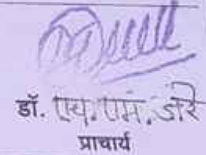 डॉ. एच. एम. जरे
प्राचार्य